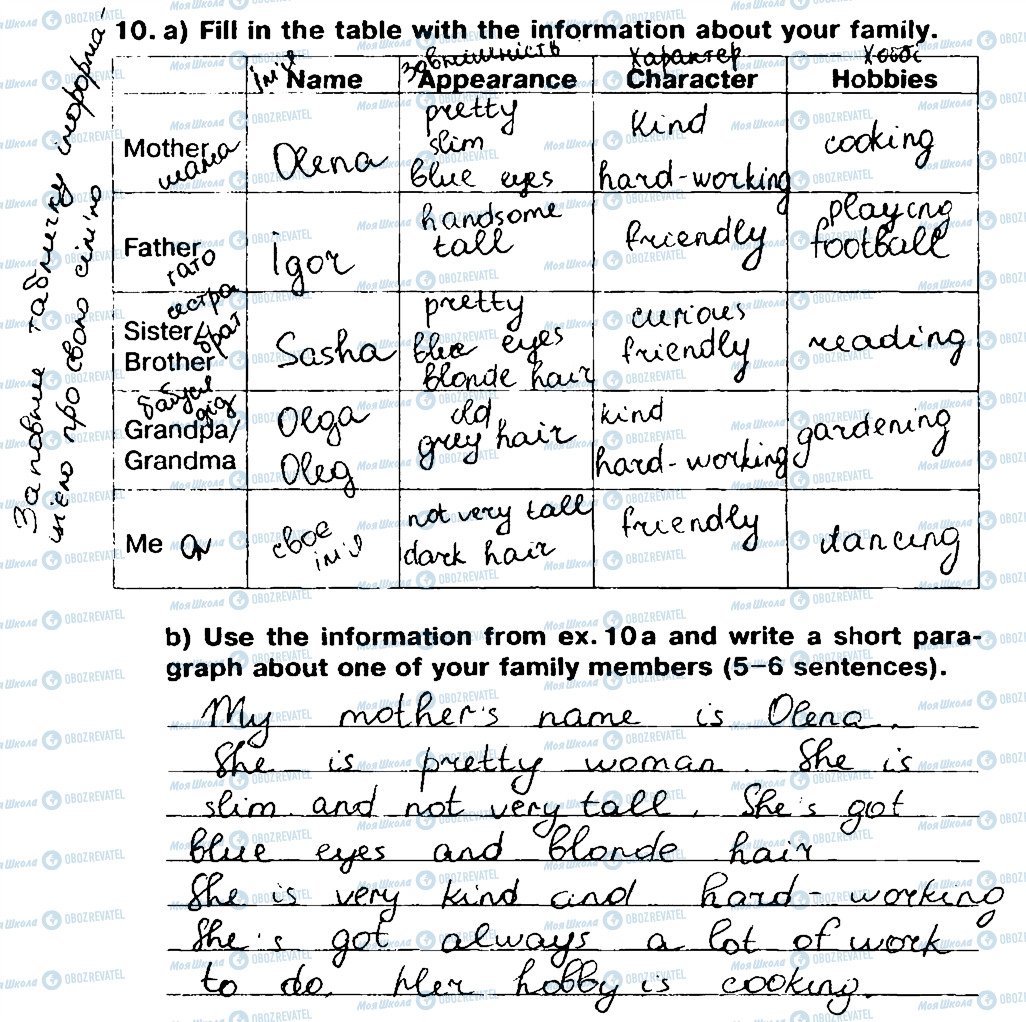 10. a) Fill in the table with the information about your family.
Заповніть табличку інформа-
цією про свою сім'ю
ім'я Name
зовнішність Appearance
характер Character
хобі Hobbies
Mother мама
Olena
pretty
slim
blue eyes
Kind
hard-working
cooking
Father тато
Igor
handsome
tall
friendly
playing
football
сестра
Sister/ брат
Brother
Sasha
pretty
blue eyes
blonde hair
curious
friendly
reading
бабуся
дід
Grandpa/
Grandma
Olga
Oleg
old
grey hair
kind
hard-working
gardening
Me я
своє
ім'я
not very tall
dark hair
friendly
dancing
b) Use the information from ex. 10 a and write a short para-
graph about one of your family members (5–6 sentences).
My mother's name is Olena.
She is pretty woman. She is
slim and not very tall. She's got
blue eyes and blonde hair
She is very kind and hard-working
She's got always a lot of work
to do. Her hobby is cooking.
Моя Школа OBOZREVATEL